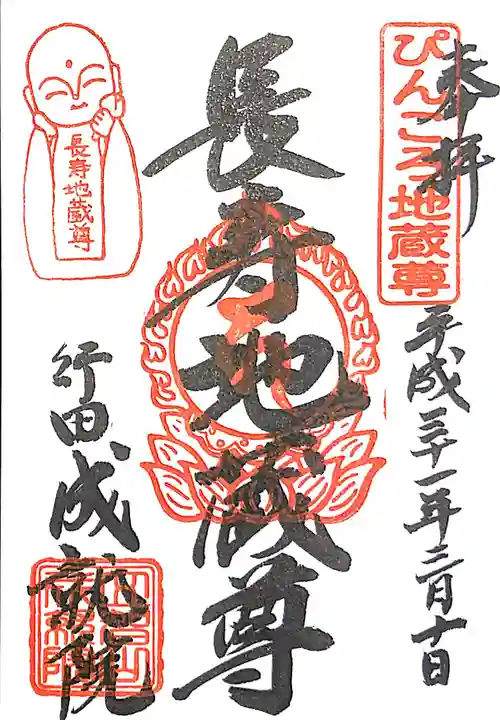 奉拝
ぴんころ地蔵尊
平成三十一年三月十日
長寿地蔵尊
長寿地蔵尊
行田成就院